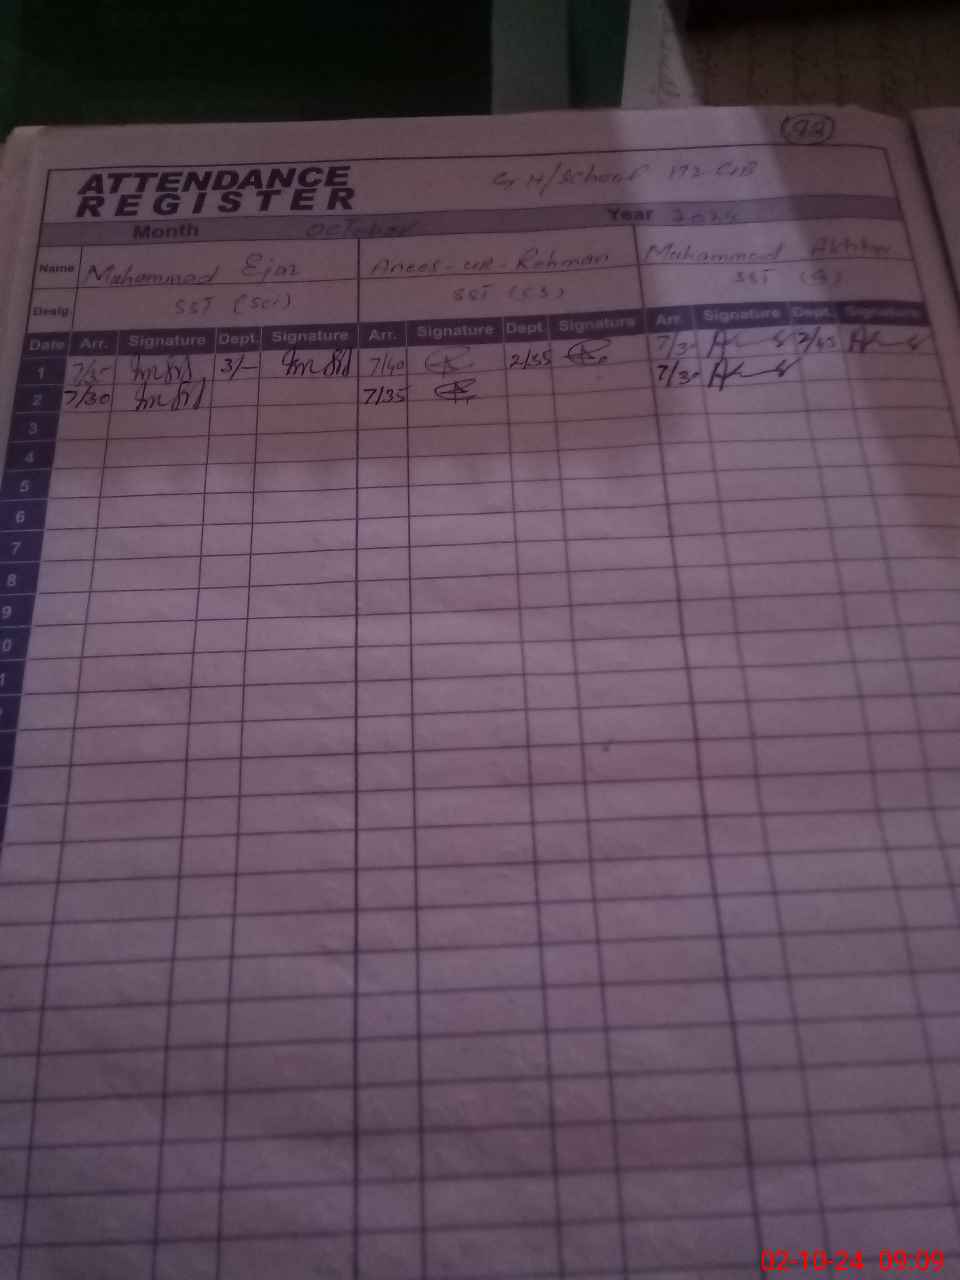 92
ATTENDANCE
REGISTER
G H/School 172-GB
Month October Year 2024
Name Muhammad Ejaz Anees-ur-Rehman Muhammad Akhtar
Desig. SST (Sci) SST (CS) SST (G)
Date Arr. Signature Dept. Signature Arr. Signature Dept. Signature Arr. Signature Dept. Signature
1 7/35 3/- 7/40 2/35 7/30 2/45
2 7/30 7/35 7/30
3
4
5
6
7
8
9
0
1
02-10-24 09:09